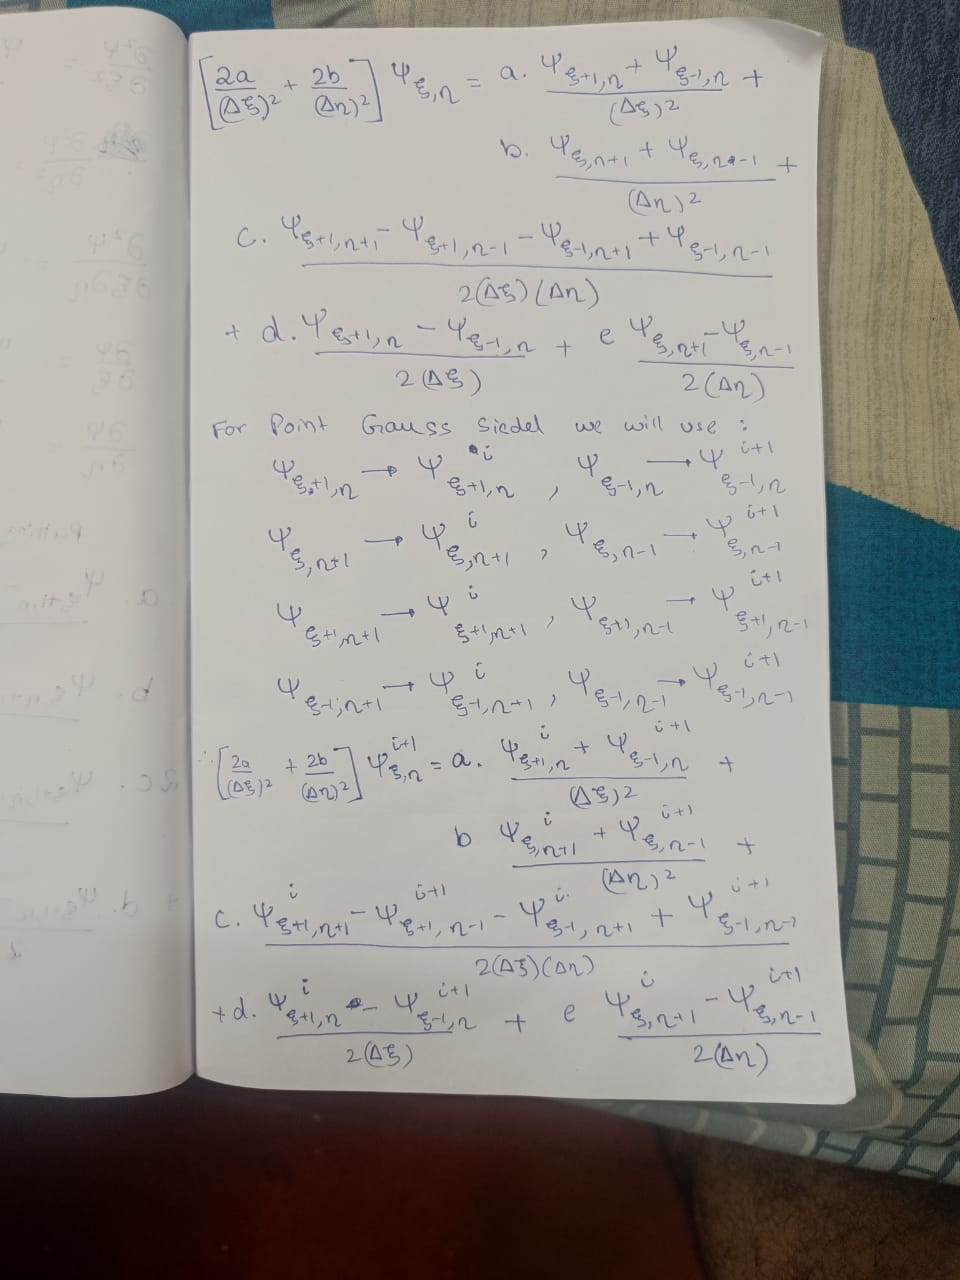 [2a/(Δξ)² + 2b/(Δη)²] Ψ_{ξ,η} = a. (Ψ_{ξ+1,η} + Ψ_{ξ-1,η})/(Δξ)² +
b. (Ψ_{ξ,η+1} + Ψ_{ξ,η-1})/(Δη)² +
c. (Ψ_{ξ+1,η+1} - Ψ_{ξ+1,η-1} - Ψ_{ξ-1,η+1} + Ψ_{ξ-1,η-1})/2(Δξ)(Δη)
+ d. (Ψ_{ξ+1,η} - Ψ_{ξ-1,η})/2(Δξ) + e (Ψ_{ξ,η+1} - Ψ_{ξ,η-1})/2(Δη)
For Point Gauss Siedel we will use :
Ψ_{ξ+1,η} → Ψ^{i}_{ξ+1,η} , Ψ_{ξ-1,η} → Ψ^{i+1}_{ξ-1,η}
Ψ_{ξ,η+1} → Ψ^{i}_{ξ,η+1} , Ψ_{ξ,η-1} → Ψ^{i+1}_{ξ,η-1}
Ψ_{ξ+1,η+1} → Ψ^{i}_{ξ+1,η+1} , Ψ_{ξ+1,η-1} → Ψ^{i+1}_{ξ+1,η-1}
Ψ_{ξ-1,η+1} → Ψ^{i}_{ξ-1,η+1} , Ψ_{ξ-1,η-1} → Ψ^{i+1}_{ξ-1,η-1}
∴ [2a/(Δξ)² + 2b/(Δη)²] Ψ^{i+1}_{ξ,η} = a. (Ψ^{i}_{ξ+1,η} + Ψ^{i+1}_{ξ-1,η})/(Δξ)² +
b (Ψ^{i}_{ξ,η+1} + Ψ^{i+1}_{ξ,η-1})/(Δη)² +
c. (Ψ^{i}_{ξ+1,η+1} - Ψ^{i+1}_{ξ+1,η-1} - Ψ^{i}_{ξ-1,η+1} + Ψ^{i+1}_{ξ-1,η-1})/2(Δξ)(Δη)
+ d. (Ψ^{i}_{ξ+1,η} - Ψ^{i+1}_{ξ-1,η})/2(Δξ) + e (Ψ^{i}_{ξ,η+1} - Ψ^{i+1}_{ξ,η-1})/2(Δη)